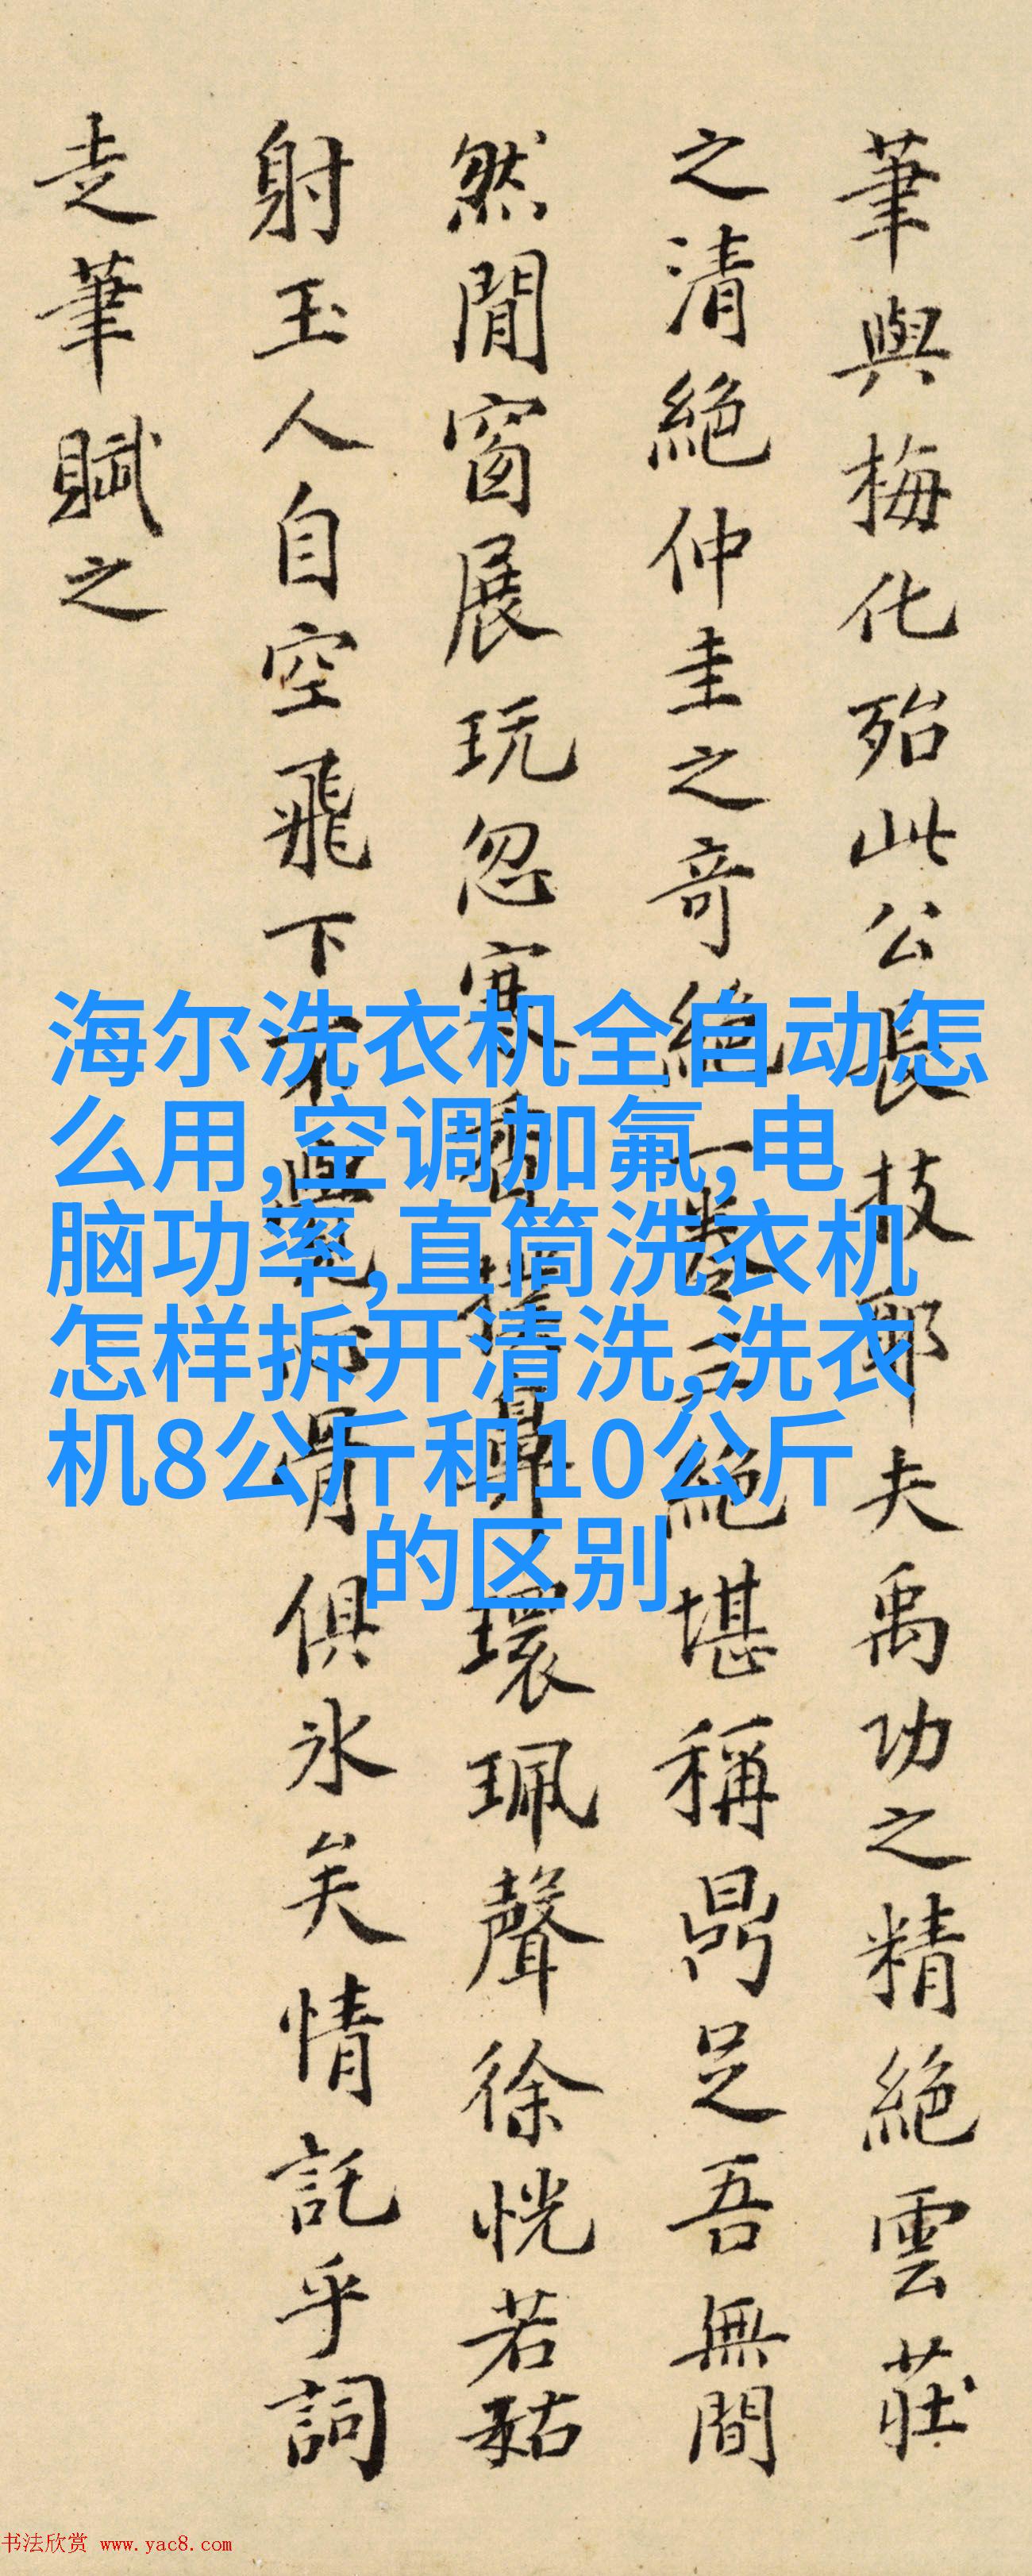 筆與梅化殆此公長技耶夫禹功之精絕雲莊
之清絕仲圭之奇絕一卷三絕堪稱鼎足吾無間
然閒窗展玩忽寒香撲鼻環珮聲徐恍若
射玉人自空飛下不覺骨俱氷矣情託乎詞
走筆賦之
海尔洗衣机全自动怎
么用,空调加氟,电
脑功率,直筒洗衣机
怎样拆开清洗,洗衣
机8公斤和10公斤
的区别
书法欣赏 www.yac8.com